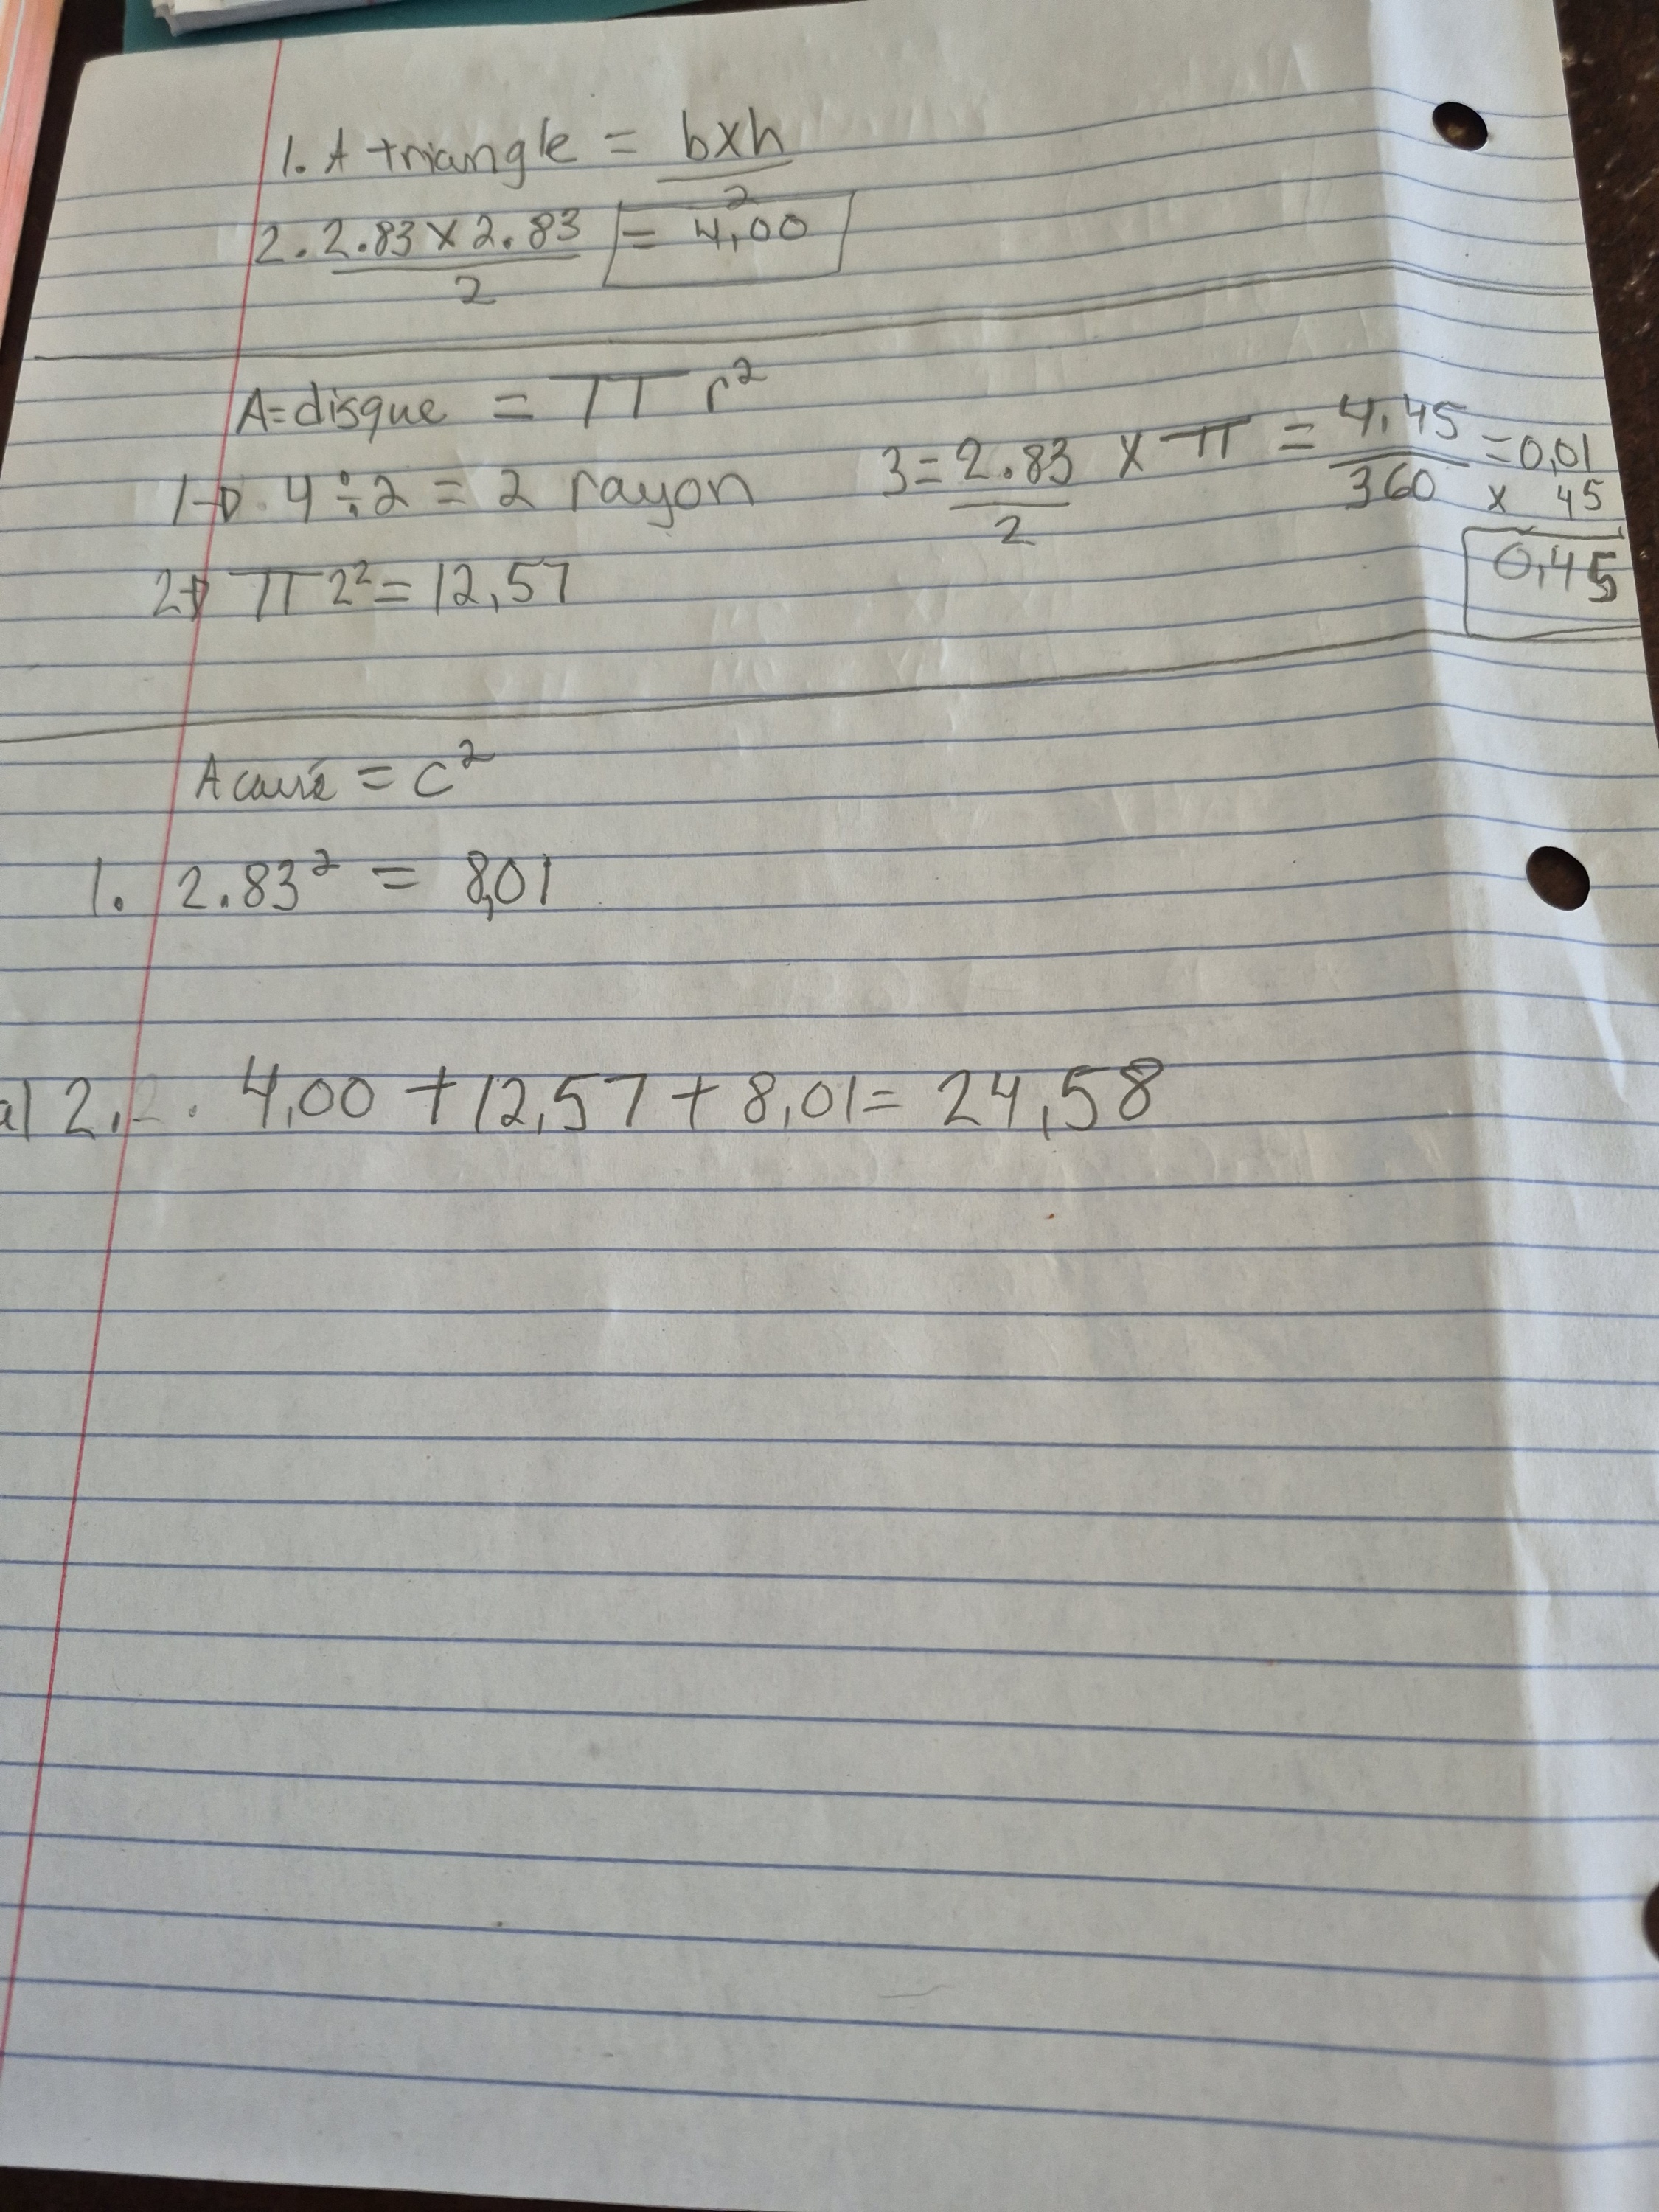 1. A triangle = bxh
2
2. 2.83 x 2.83 = 4,00
2
A=disque = π r²
1→. 4 ÷ 2 = 2 rayon
2→ π 2² = 12,57
3 = 2.83 x π = 4,45 = 0,01
2 360 x 45
0,45
A carré = c²
1. 2.83² = 8,01
a) 2. 4,00 + 12,57 + 8,01 = 24,58